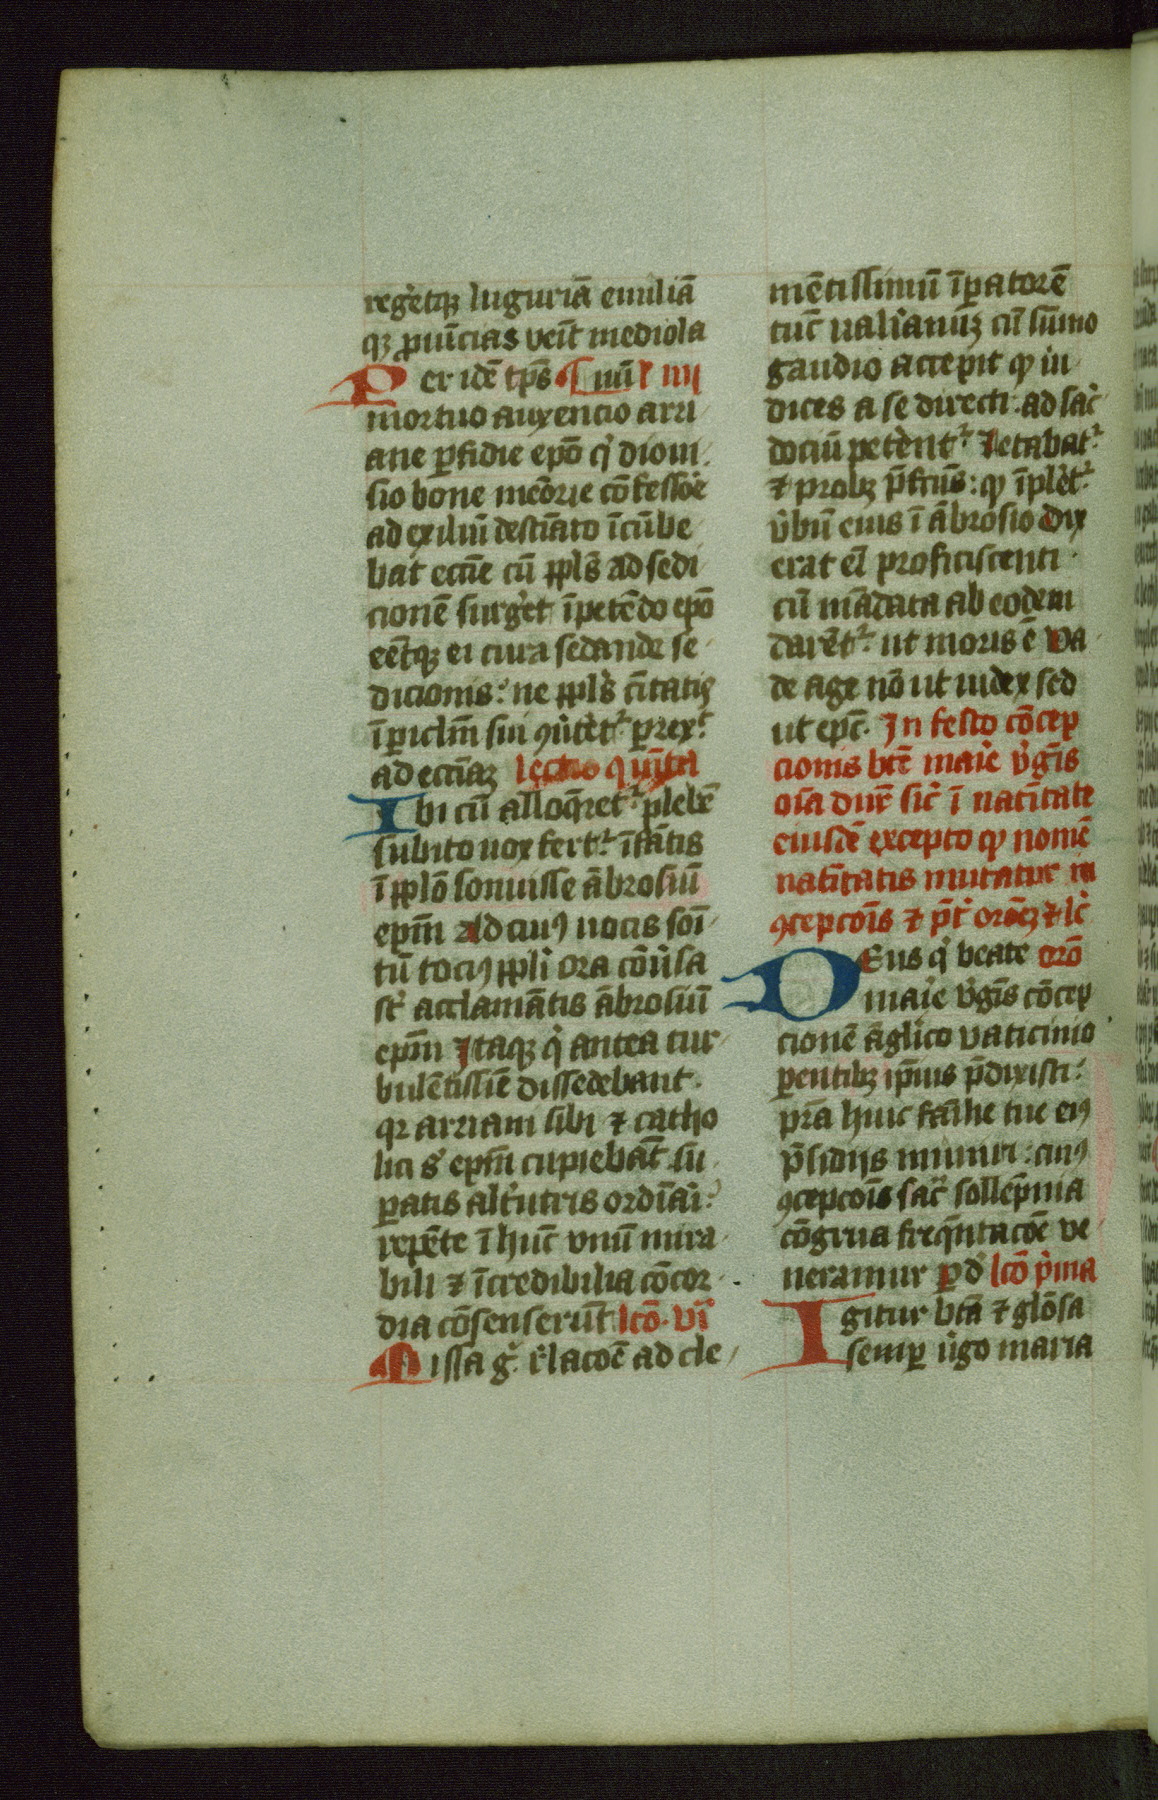 reg̾etqꝫ luguriā emiliā
qꝫ ꝓuīcias veīt mediola
Per idē tp̄s ¶ nū l iiii
mortuo auxencio arri
ane ꝑfidie epō q̾ dioni
sio bone mēorie cōfessōe
ad exiliū destīato īcūbe
bat eccīie cū ppl̄s ad sedi
cionē surg̾et īpetēdo epō
eētqꝫ ei cura sedande se
dicionis: ne ppl̄s cītatis
ī ꝑiclm̄ sui ꝯūtet᷑ ꝑrex᷑
ad eccīaꝫ lectio quīta
Ibi cū alloq̄ret᷑ plebē
subito vox fert᷑ īfātis
ī pplō sonuisse ābrosiū
epm̄ Ad cuiꝰ vocis soī
tū tociꝰ ppli ora cōv̾sa
st̾ acclamātis ābrosiū
epm̄ Itaqꝫ q̾ antea tur
bulētissīe dissedebant
qꝛ arriani sibi ⁊ catho
lici s̾ epm̄ cupiebāt su
ꝑatis alt̾utris ordīai̾:
repēte ī hūc vnū mira
bili ⁊ īcredibilia cōcor
dia cōsenserūt lcō. vi
Missa g̾ r̾lacoē ad cle
mētissimū īꝑatorē
tūc ualīanūꝫ cū sūmo
gaudio accepit ꝙ iu
dices a se directi: ad sac̾
dociū petēnt᷑ letabat᷑
⁊ probꝫ p̄fcūs: ꝙ īplēt᷑
v̾bū eius ī ābrosio Dix
erat eī proficiscenti
cū mādata ab eodem
darēt᷑ ut moris ē va
de age nō ut iudex sed
ut epc̄. In festo cōcep
cionis btē maie̾ v̾gīs
oīa dūr̄ sic̾ ī natītate
eiusdē excepto ꝙ nomē
natītatis mutatur in
ꝯcepcoīs ⁊ p̄t̾ orōeꝫ ⁊ lc̾
Deus q̾ beate orō
maie̾ v̾gīs cōcep
cionē āglico vaticinio
ꝑentibꝫ ip̄ius p̄dixisti:
pr̄a huic famīe tue eiꝰ
p̄sidijs muniri: cuiꝰ
ꝯcepcoīs sac̾ sollēpnia
cōgrua freq̄ntacōe ve
neramur ꝑ d̾ lcō p̾ma
Igitur btā ⁊ glōsa
semꝑ v̾go maria